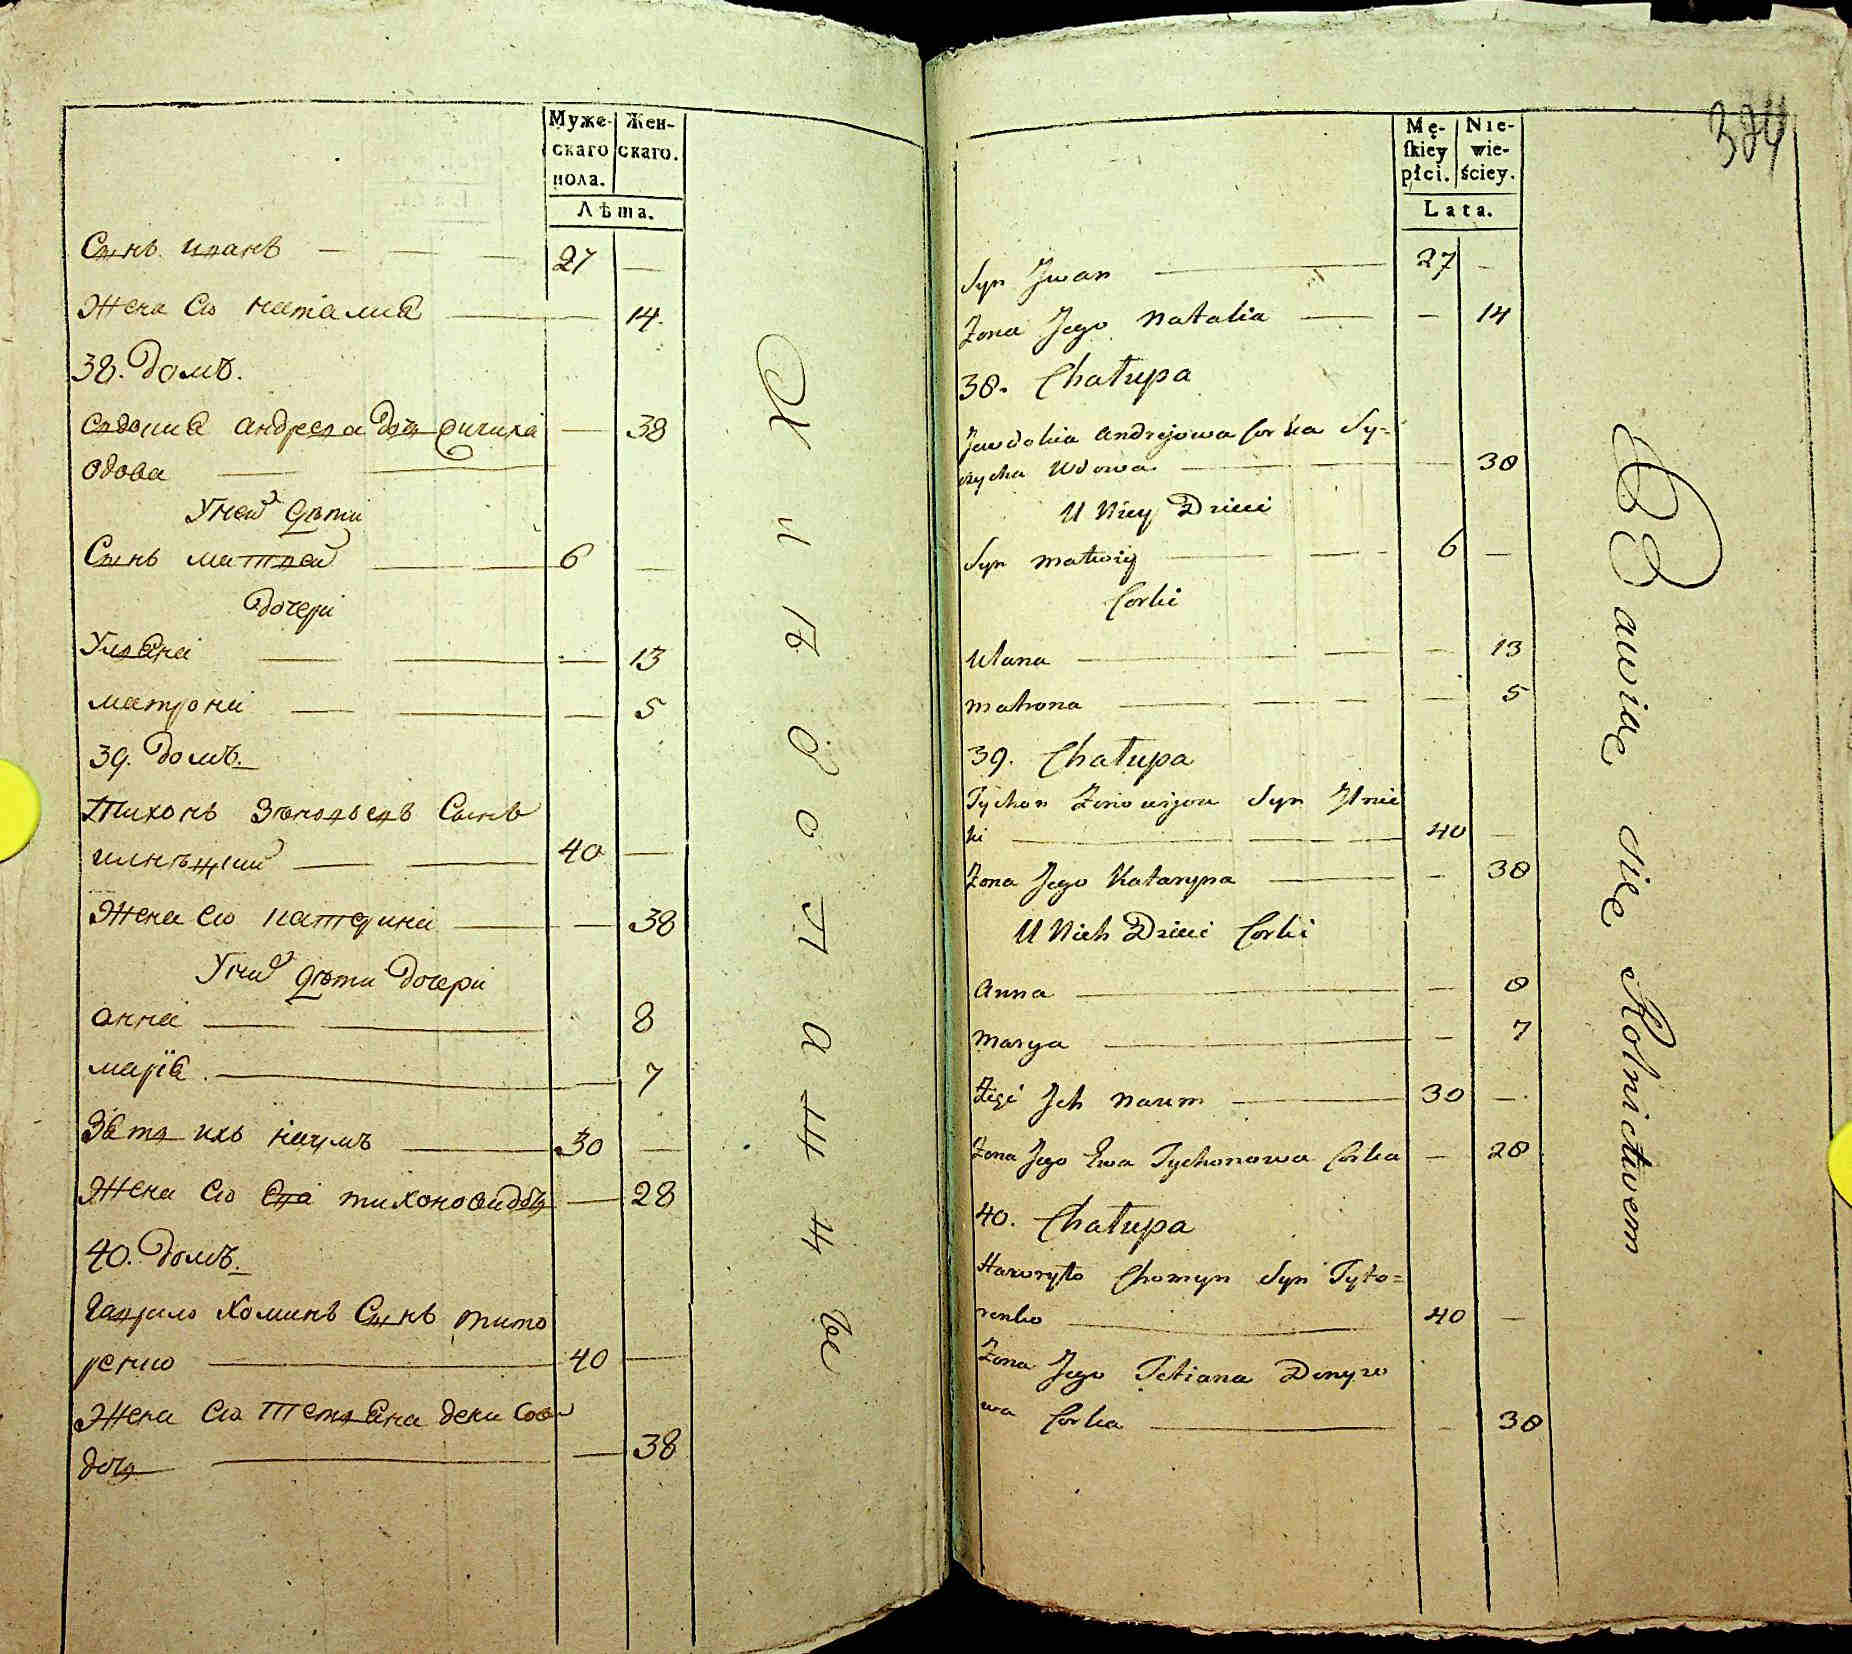 Муже- Жен-
скаго скаго.
пола.
Лѣта.
Сынъ иванъ — — — 27 —
Жена Ео наталиа — — 14.
38. домъ.
Євдокиа андреєва доч Сичиха — 38
вдова — —
У неи дѣти
Сынъ матвей — — 6 —
дочери
Улиана — — — 13
матрона — — — 5
39. домъ.
Тихонъ Зѣновьевъ Сынъ
илнѣцкий — — 40 —
Жена Ео катерина — — 38
У них дѣти дочери
анна — — 8
мариа — — 7
Зать ихъ наумъ — 30 —
Жена Ео Ева тихонова доч — 28
40. домъ.
Гаврило Хоминъ Сынъ тито
ренко — 40 —
Жена Ео Тетиана дени сова
доч — — 38
Хлѣбопашные
384
Mę- Nie-
ſkiey wie-
płci. ściey.
Lata.
Syn Jwan — 27 —
Żona Jego Natalia — — 14
38. Chałupa
Jewdokia Andrejowa Corka Sy=
czycha Wdowa — — 38
U Niey Dzieci
Syn Matwiy — — 6 —
Corki
Ulana — — — 13
Matrona — — — 5
39. Chałupa
Tychon Zinowijow Syn Jlnic
ki — — 40 —
Żona Jego Kataryna — — 38
U Nich Dzieci Corki
Anna — — 8
Marya — — 7
Zięć Jch Naum — 30 —
Żona Jego Ewa Tychonowa Corka — 28
40. Chałupa
Hawryło Chomyn Syn Tyto=
renko — 40 —
Żona Jego Tetiana Denyso
wa Corka — — 38
Bawiąc się Rolnictwem